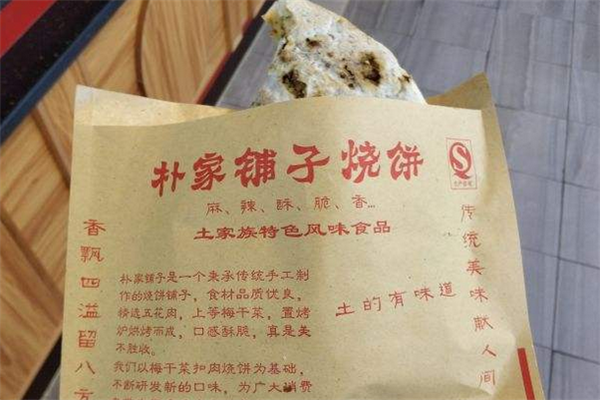 朴家铺子烧饼
麻、辣、酥、脆、香...
土家族特色风味食品
香飘四溢留八方
朴家铺子是一个秉承传统手工制
作的烧饼铺子，食材品质优良，
精选五花肉，上等梅干菜，置烤
炉烘烤而成，口感酥脆，真是美
不胜收。
我们以梅干菜扣肉烧饼为基础，
不断研发新的口味，为广大消费
土的有味道
传统美味献人间